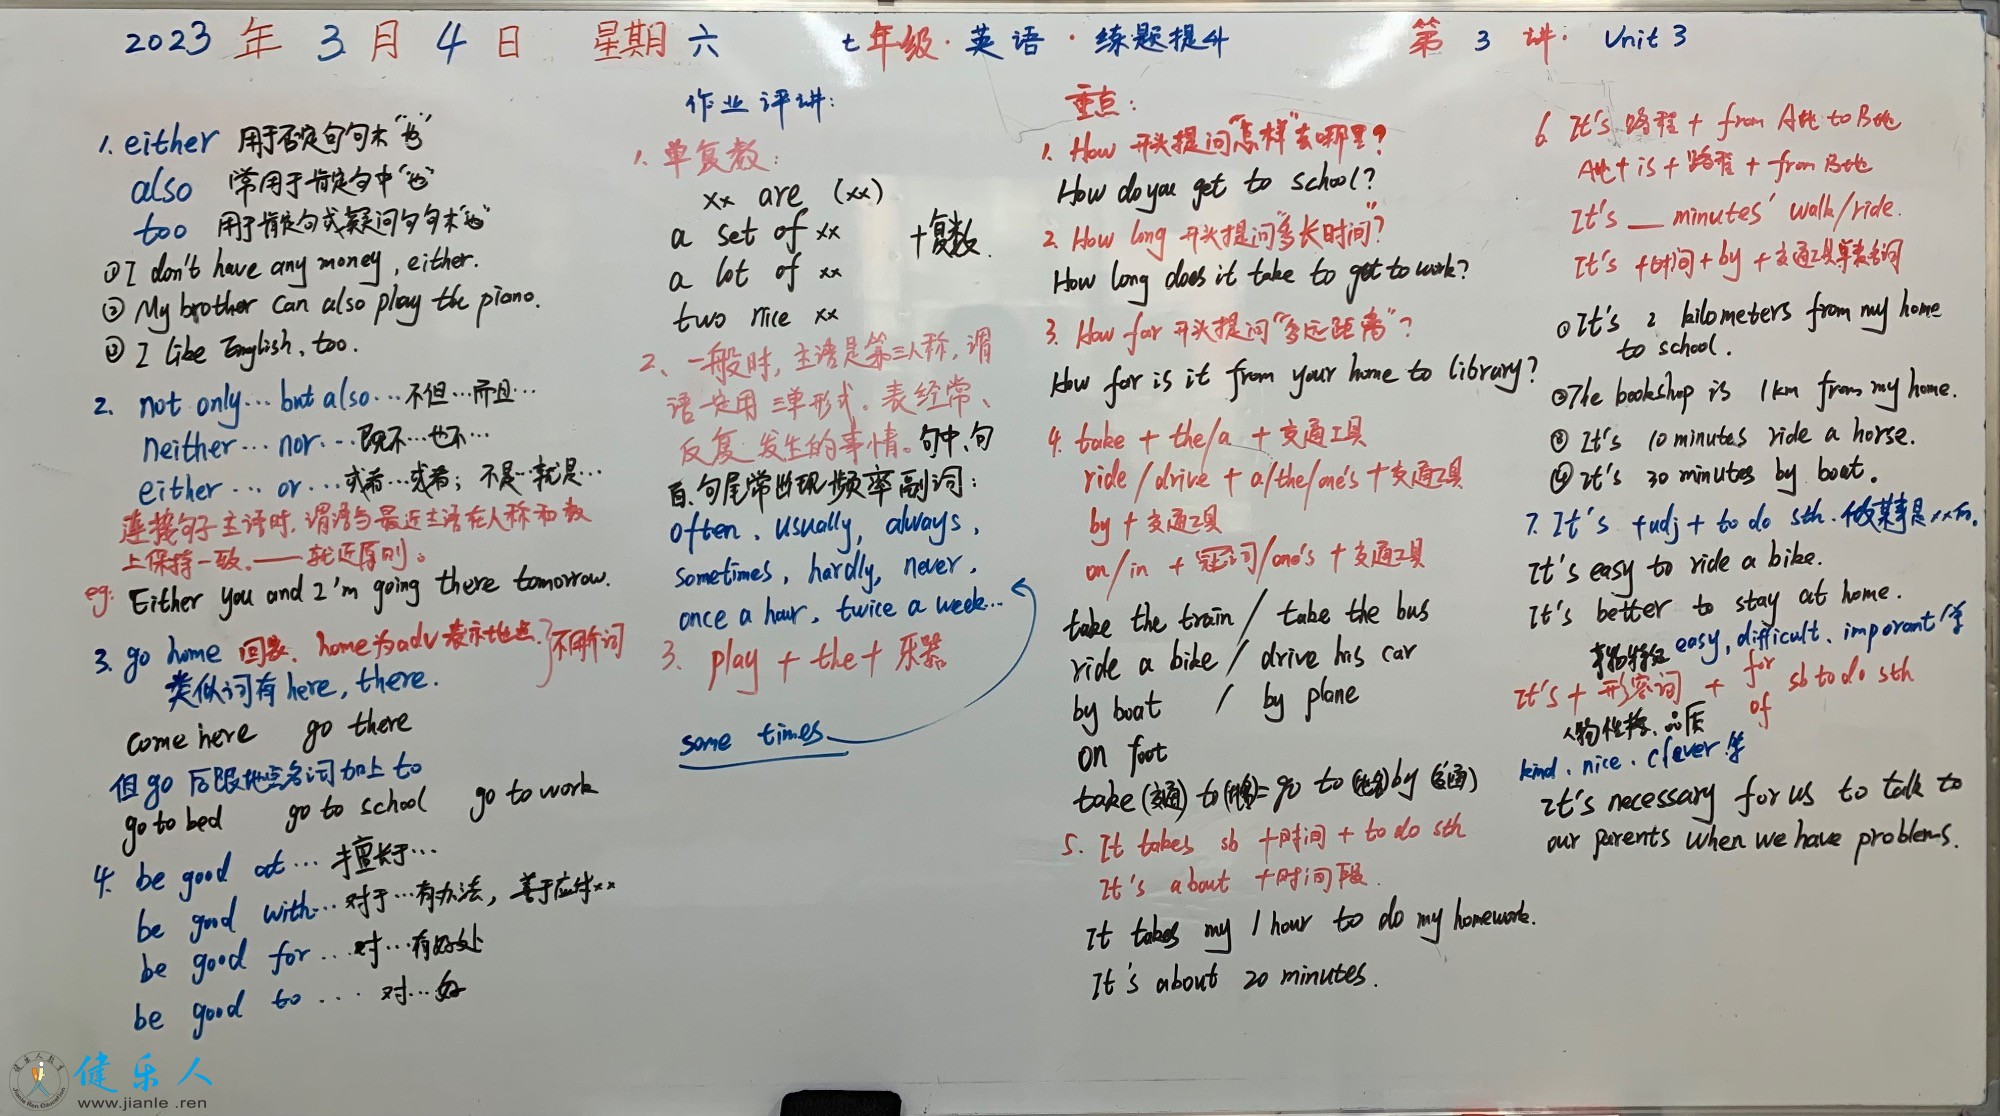 2023年3月4日 星期六 七年级·英语·练题提升 第3讲: Unit 3
1. either 用于否定句句末"也"
also 常用于肯定句中"也"
too 用于肯定句或疑问句句末"也"
① I don't have any money, either.
② My brother can also play the piano.
③ I like English, too.
2. not only … but also … 不但…而且…
neither … nor … 既不…也不…
either … or … 或者…或者; 不是…就是…
连接句子主语时,谓语与最近主语在人称和数
上保持一致.——就近原则。
eg: Either you and I'm going there tomorrow.
3. go home 回家. home为adv表示地点. }不用介词
类似词有 here, there.
come here go there
但go后跟地点名词加上to
go to bed go to school go to work
4. be good at … 擅长于…
be good with … 对于…有办法, 善于应付××
be good for … 对…有好处
be good to …. 对…好
作业评讲:
1. 单复数:
xx are (xx)
a set of xx +复数.
a lot of xx
two nice xx
2、一般时,主语是第三人称,谓
语一定用三单形式。表经常、
反复发生的事情。句中、句
首、句尾常出现频率副词:
often, usually, always,
sometimes, hardly, never,
once a hour, twice a week…
3. play + the + 乐器
some times
重点:
1. How 开头提问"怎样"去哪里?
How do you get to school?
2. How long 开头提问"多长时间"?
How long does it take to get to work?
3. How far 开头提问"多远距离"?
How far is it from your home to library?
4. take + the/a + 交通工具
ride/drive + a/the/one's + 交通工具
by + 交通工具
on/in + 冠词/one's + 交通工具
take the train / take the bus
ride a bike / drive his car
by boat / by plane
on foot
take (交通) to (地名) = go to (地名) by (交通)
5. It takes sb +时间 + to do sth
It's about +时间段.
It takes my 1 hour to do my homework.
It's about 20 minutes.
6. It's 路程 + from A地 to B地
A地 + is + 路程 + from B地
It's __ minutes' walk/ride.
It's +时间 + by + 交通工具单数名词
① It's 2 kilometers from my home
to school.
② The bookshop is 1km from my home.
③ It's 10 minutes ride a horse.
④ It's 30 minutes by boat.
7. It's +adj + to do sth. 做某事是××的.
It's easy to ride a bike.
It's better to stay at home.
事物特征 easy, difficult, imporant等
It's + 形容词 + for/of sb to do sth
人物性格、品质
kind, nice, clever等
It's necessary for us to talk to
our parents when we have problems.
健乐人
www.jianle.ren